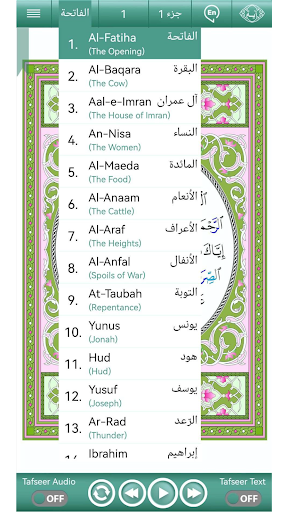 الفاتحة 1 جزء 1 En
1. Al-Fatiha الفاتحة
(The Opening)
2. Al-Baqara البقرة
(The Cow)
3. Aal-e-Imran آل عمران
(The House of Imran)
4. An-Nisa النساء
(The Women)
5. Al-Maeda المائدة
(The Food)
6. Al-Anaam الأنعام
(The Cattle)
7. Al-Araf الأعراف
(The Heights)
8. Al-Anfal الأنفال
(Spoils of War)
9. At-Taubah التوبة
(Repentance)
10. Yunus يونس
(Jonah)
11. Hud هود
(Hud)
12. Yusuf يوسف
(Joseph)
13. Ar-Rad الرّعد
(Thunder)
Ibrahim إبراهيم
Tafseer Audio Tafseer Text
OFF OFF